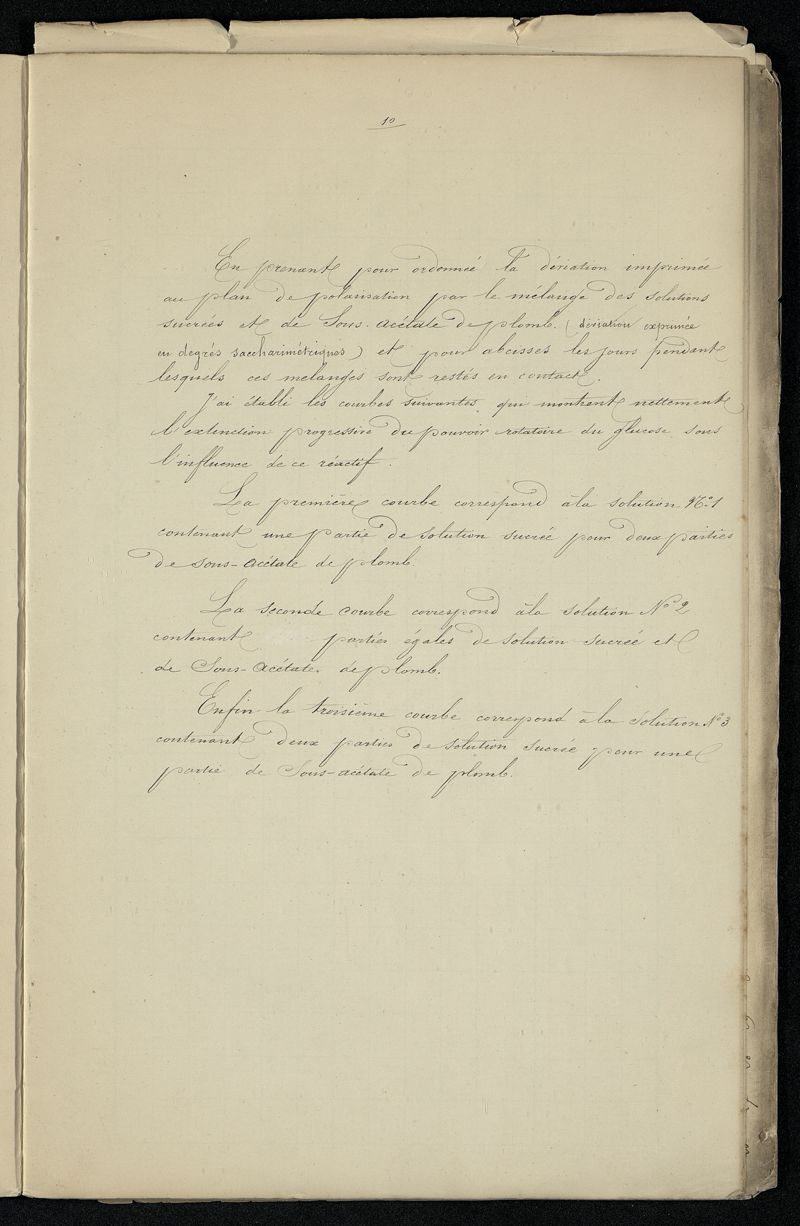 10
En prenant pour ordonnée la déviation imprimée
au plan de polarisation par le mélange des solutions
sucrées et de Sous-acétate de plomb. (déviation exprimée
en degrés saccharimétriques) et pour abcisses les jours pendant
lesquels ces mélanges sont restés en contact.
J'ai établi les courbes suivantes, qui montrent nettement
l'extinction progressive du pouvoir rotatoire du glucose sous
l'influence de ce réactif.
La première courbe correspond à la solution No 1
contenant une partie de solution sucrée pour deux parties
de sous-acétate de plomb.
La seconde courbe correspond à la solution No 2
contenant parties égales de solution sucrée et
de Sous-Acétate de plomb.
Enfin la troisième courbe correspond à la solution No 3
contenant deux parties de solution sucrée pour une
partie de Sous-acétate de plomb.